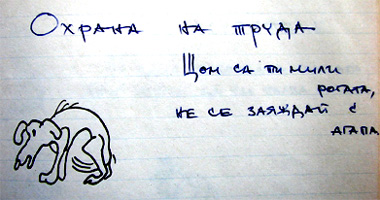 Охрана на труда
Щом са ти мили
рогата,
не се заяждай с
агапа.